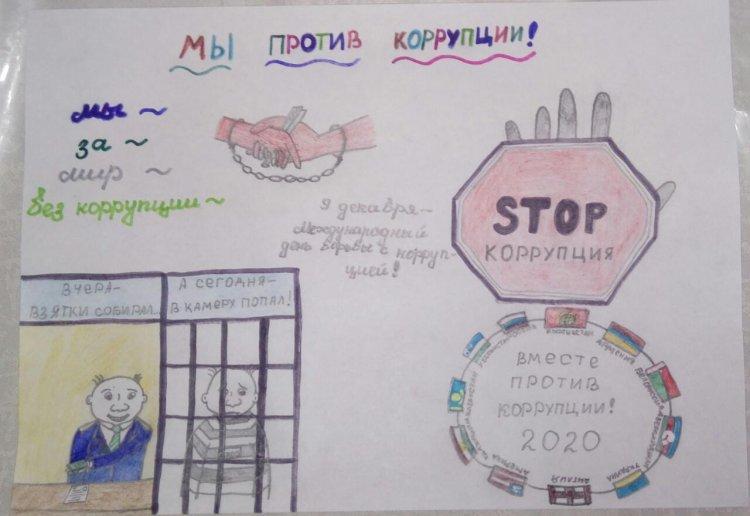 Мы против коррупции!
мы ~
за ~
мир ~
без коррупции ~
9 декабря –
Международный
день борьбы с корруп-
цией!
STOP
КОРРУПЦИЯ
ВЧЕРА–
ВЗЯТКИ СОБИРАЛ...
А СЕГОДНЯ–
В КАМЕРУ ПОПАЛ!
ВМЕСТЕ
ПРОТИВ
КОРРУПЦИИ!
2020
АРМЕНИЯ
УКРАИНА
АНГЛИЯ
АМЕРИКА